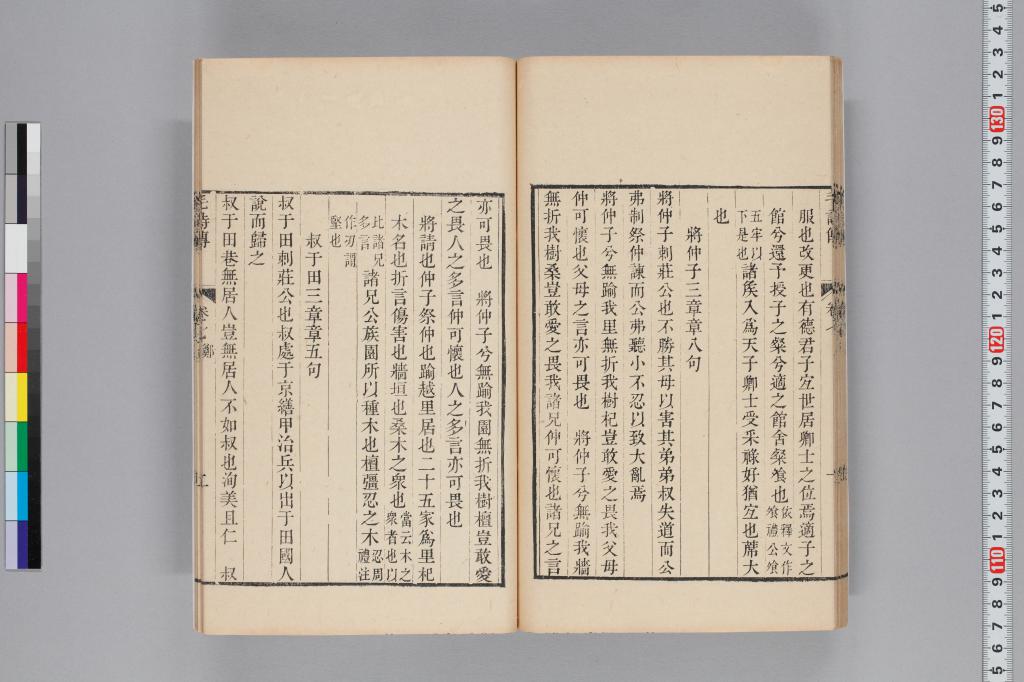 服也改更也有德君子宜世居卿士之位焉適子之
館兮還予授子之粲兮適之館舍粲餐也依釋文作飧禮公飧
五牢以下是也諸矦入爲天子卿士受采祿好猶宜也蓆大
也
將仲子三章章八句
將仲子刺莊公也不勝其母以害其弟弟叔失道而公
弗制祭仲諫而公弗聽小不忍以致大亂焉
將仲子兮無踰我里無折我樹杞豈敢愛之畏我父母
仲可懷也父母之言亦可畏也 將仲子兮無踰我牆
無折我樹桑豈敢愛之畏我諸兄仲可懷也諸兄之言
亦可畏也 將仲子兮無踰我園無折我樹檀豈敢愛
之畏人之多言仲可懷也人之多言亦可畏也
將請也仲子祭仲也踰越里居也二十五家爲里杞
木名也折言傷害也牆垣也桑木之衆也當云木之衆者也以
此諸兄多言諸兄公族園所以種木也檀彊忍之木忍周禮注
作刃謂堅也
叔于田三章章五句
叔于田刺莊公也叔處于京繕甲治兵以出于田國人
說而歸之
叔于田巷無居人豈無居人不如叔也洵美且仁 叔
毛詩傳 卷七 鄭
5
4
3
2
1
130
9
8
7
6
5
4
3
2
1
120
9
8
7
6
5
4
3
2
1
110
9
8
7
6
5